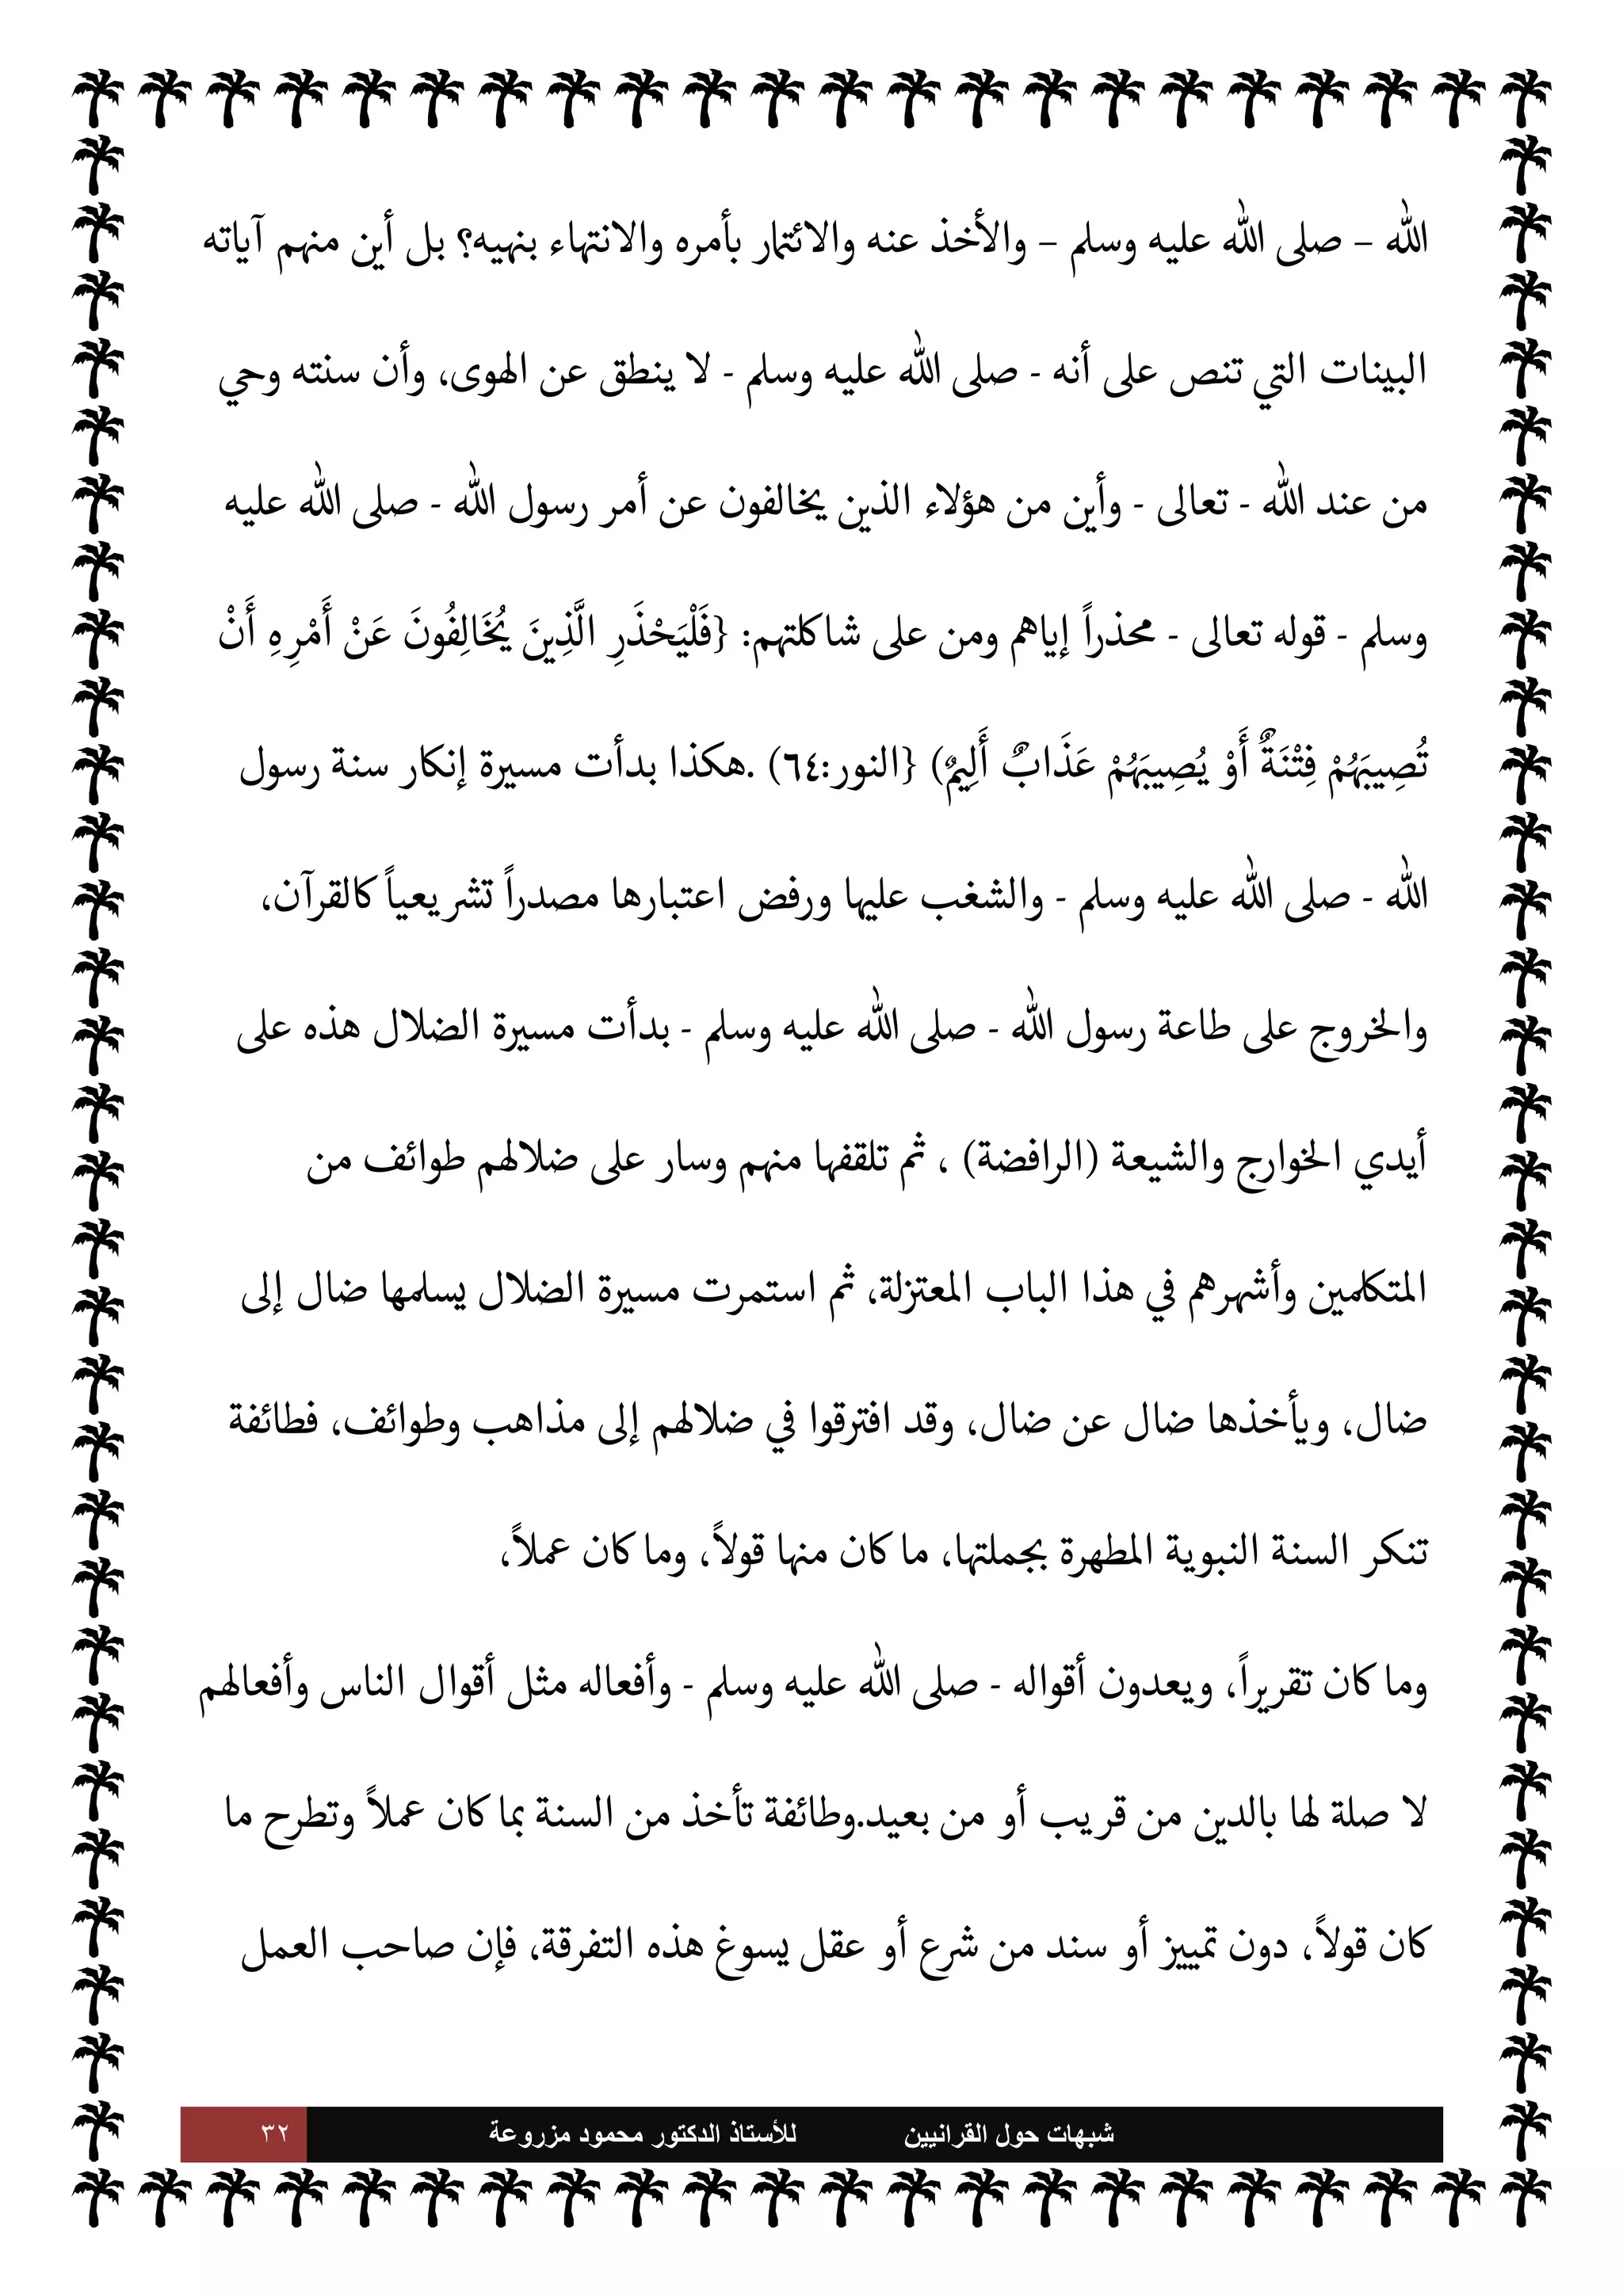 الله – صلى الله عليه وسلم – والأخذ عنه والائتمار بأمره والانتهاء بنهيه؟ بل أين منهم آياته
البينات التي تنص على أنه - صلى الله عليه وسلم - لا ينطق عن الهوى، وأن سنته وحي
من عند الله - تعالى - وأين من هؤلاء الذين يخالفون عن أمر رسول الله - صلى الله عليه
وسلم - قوله تعالى - محذراً إياهم ومن على شاكلتهم: {فَلْيَحْذَرِ الَّذِينَ يُخَالِفُونَ عَنْ أَمْرِهِ أَنْ
تُصِيبَهُمْ فِتْنَةٌ أَوْ يُصِيبَهُمْ عَذَابٌ أَلِيمٌ) {النور:٦٤) .هكذا بدأت مسيرة إنكار سنة رسول
الله - صلى الله عليه وسلم - والشغب عليها ورفض اعتبارها مصدراً تشريعياً كالقرآن،
والخروج على طاعة رسول الله - صلى الله عليه وسلم - بدأت مسيرة الضلال هذه على
أيدي الخوارج والشيعة (الرافضة) ، ثم تلقفها منهم وسار على ضلالهم طوائف من
المتكلمين وأشهرهم في هذا الباب المعتزلة، ثم استمرت مسيرة الضلال يسلمها ضال إلى
ضال، ويأخذها ضال عن ضال، وقد افترقوا في ضلالهم إلى مذاهب وطوائف، فطائفة
تنكر السنة النبوية المطهرة بجملتها، ما كان منها قولاً، وما كان عملاً،
وما كان تقريراً، ويعدون أقواله - صلى الله عليه وسلم - وأفعاله مثل أقوال الناس وأفعالهم
لا صلة لها بالدين من قريب أو من بعيد.وطائفة تأخذ من السنة بما كان عملاً وتطرح ما
كان قولاً، دون تمييز أو سند من شرع أو عقل يسوغ هذه التفرقة، فإن صاحب العمل
شبهات حول القرانيين للأستاذ الدكتور محمود مزروعة ٣٢